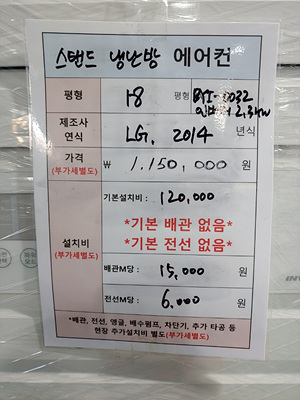 스탠드 냉난방 에어컨
평형 18 평형
제조사 LG, 2014 년식
연식
가격 ₩ 1,150,000 원
(부가세별도)
기본설치비: 120,000
*기본 배관 없음*
설치비 *기본 전선 없음*
(부가세별도)
배관M당: 15,000 원
전선M당: 6,000 원
*배관, 전선, 앵글, 배수펌프, 차단기, 추가 타공 등
현장 추가설치비 별도(부가세별도)